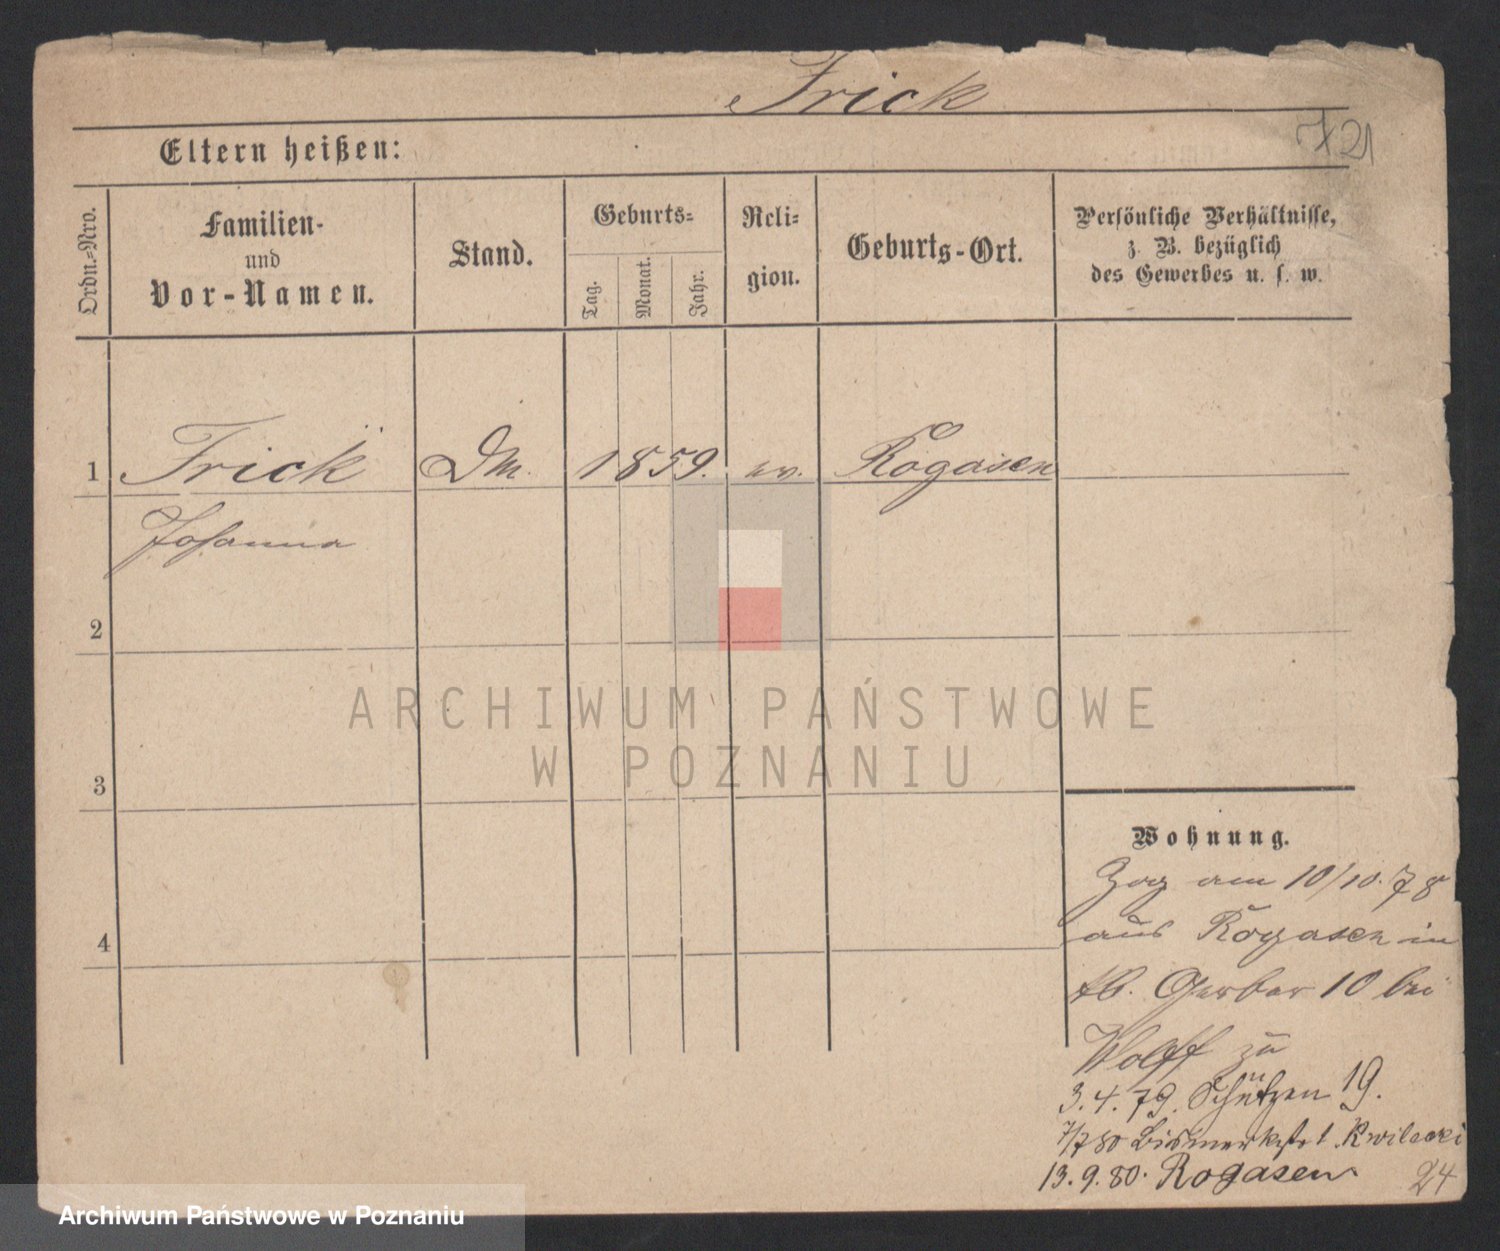 Frick
721
Eltern heißen:
Ordn.-Nro.
Familien-
und
Vor-Namen.
Stand.
Geburts-
Tag.
Monat.
Jahr.
Reli-
gion.
Geburts-Ort.
Persönliche Verhältnisse,
z. B. bezüglich
des Gewerbes u. s. w.
1 Frick Dm. 1859. ev. Rogasen
Johanna
2
3
4
ARCHIWUM PAŃSTWOWE
W POZNANIU
Wohnung.
Zog am 10/10.78
aus Rogasen in
Gerber 10 bei
Wolff zu
3.4.79. Schützen 19.
7/7 80 Bismarkstr 1 Kwilecki
13.9.80. Rogasen
24
Archiwum Państwowe w Poznaniu